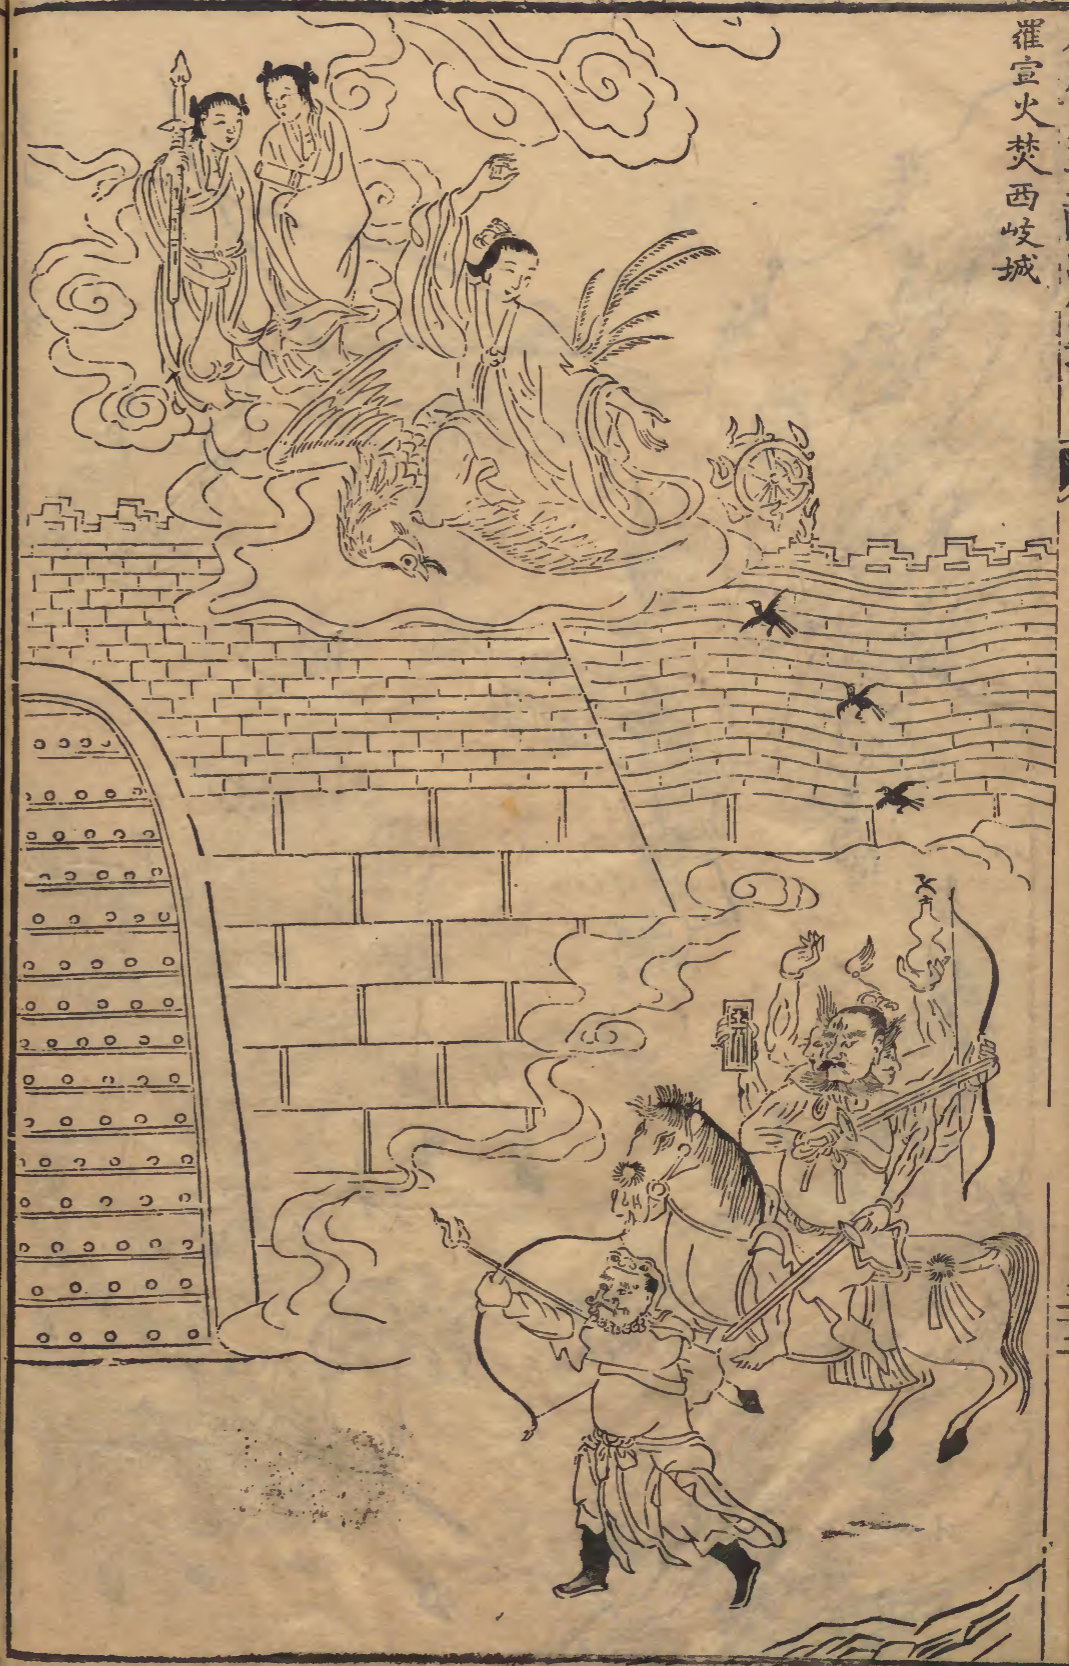 羅宣火焚西岐城